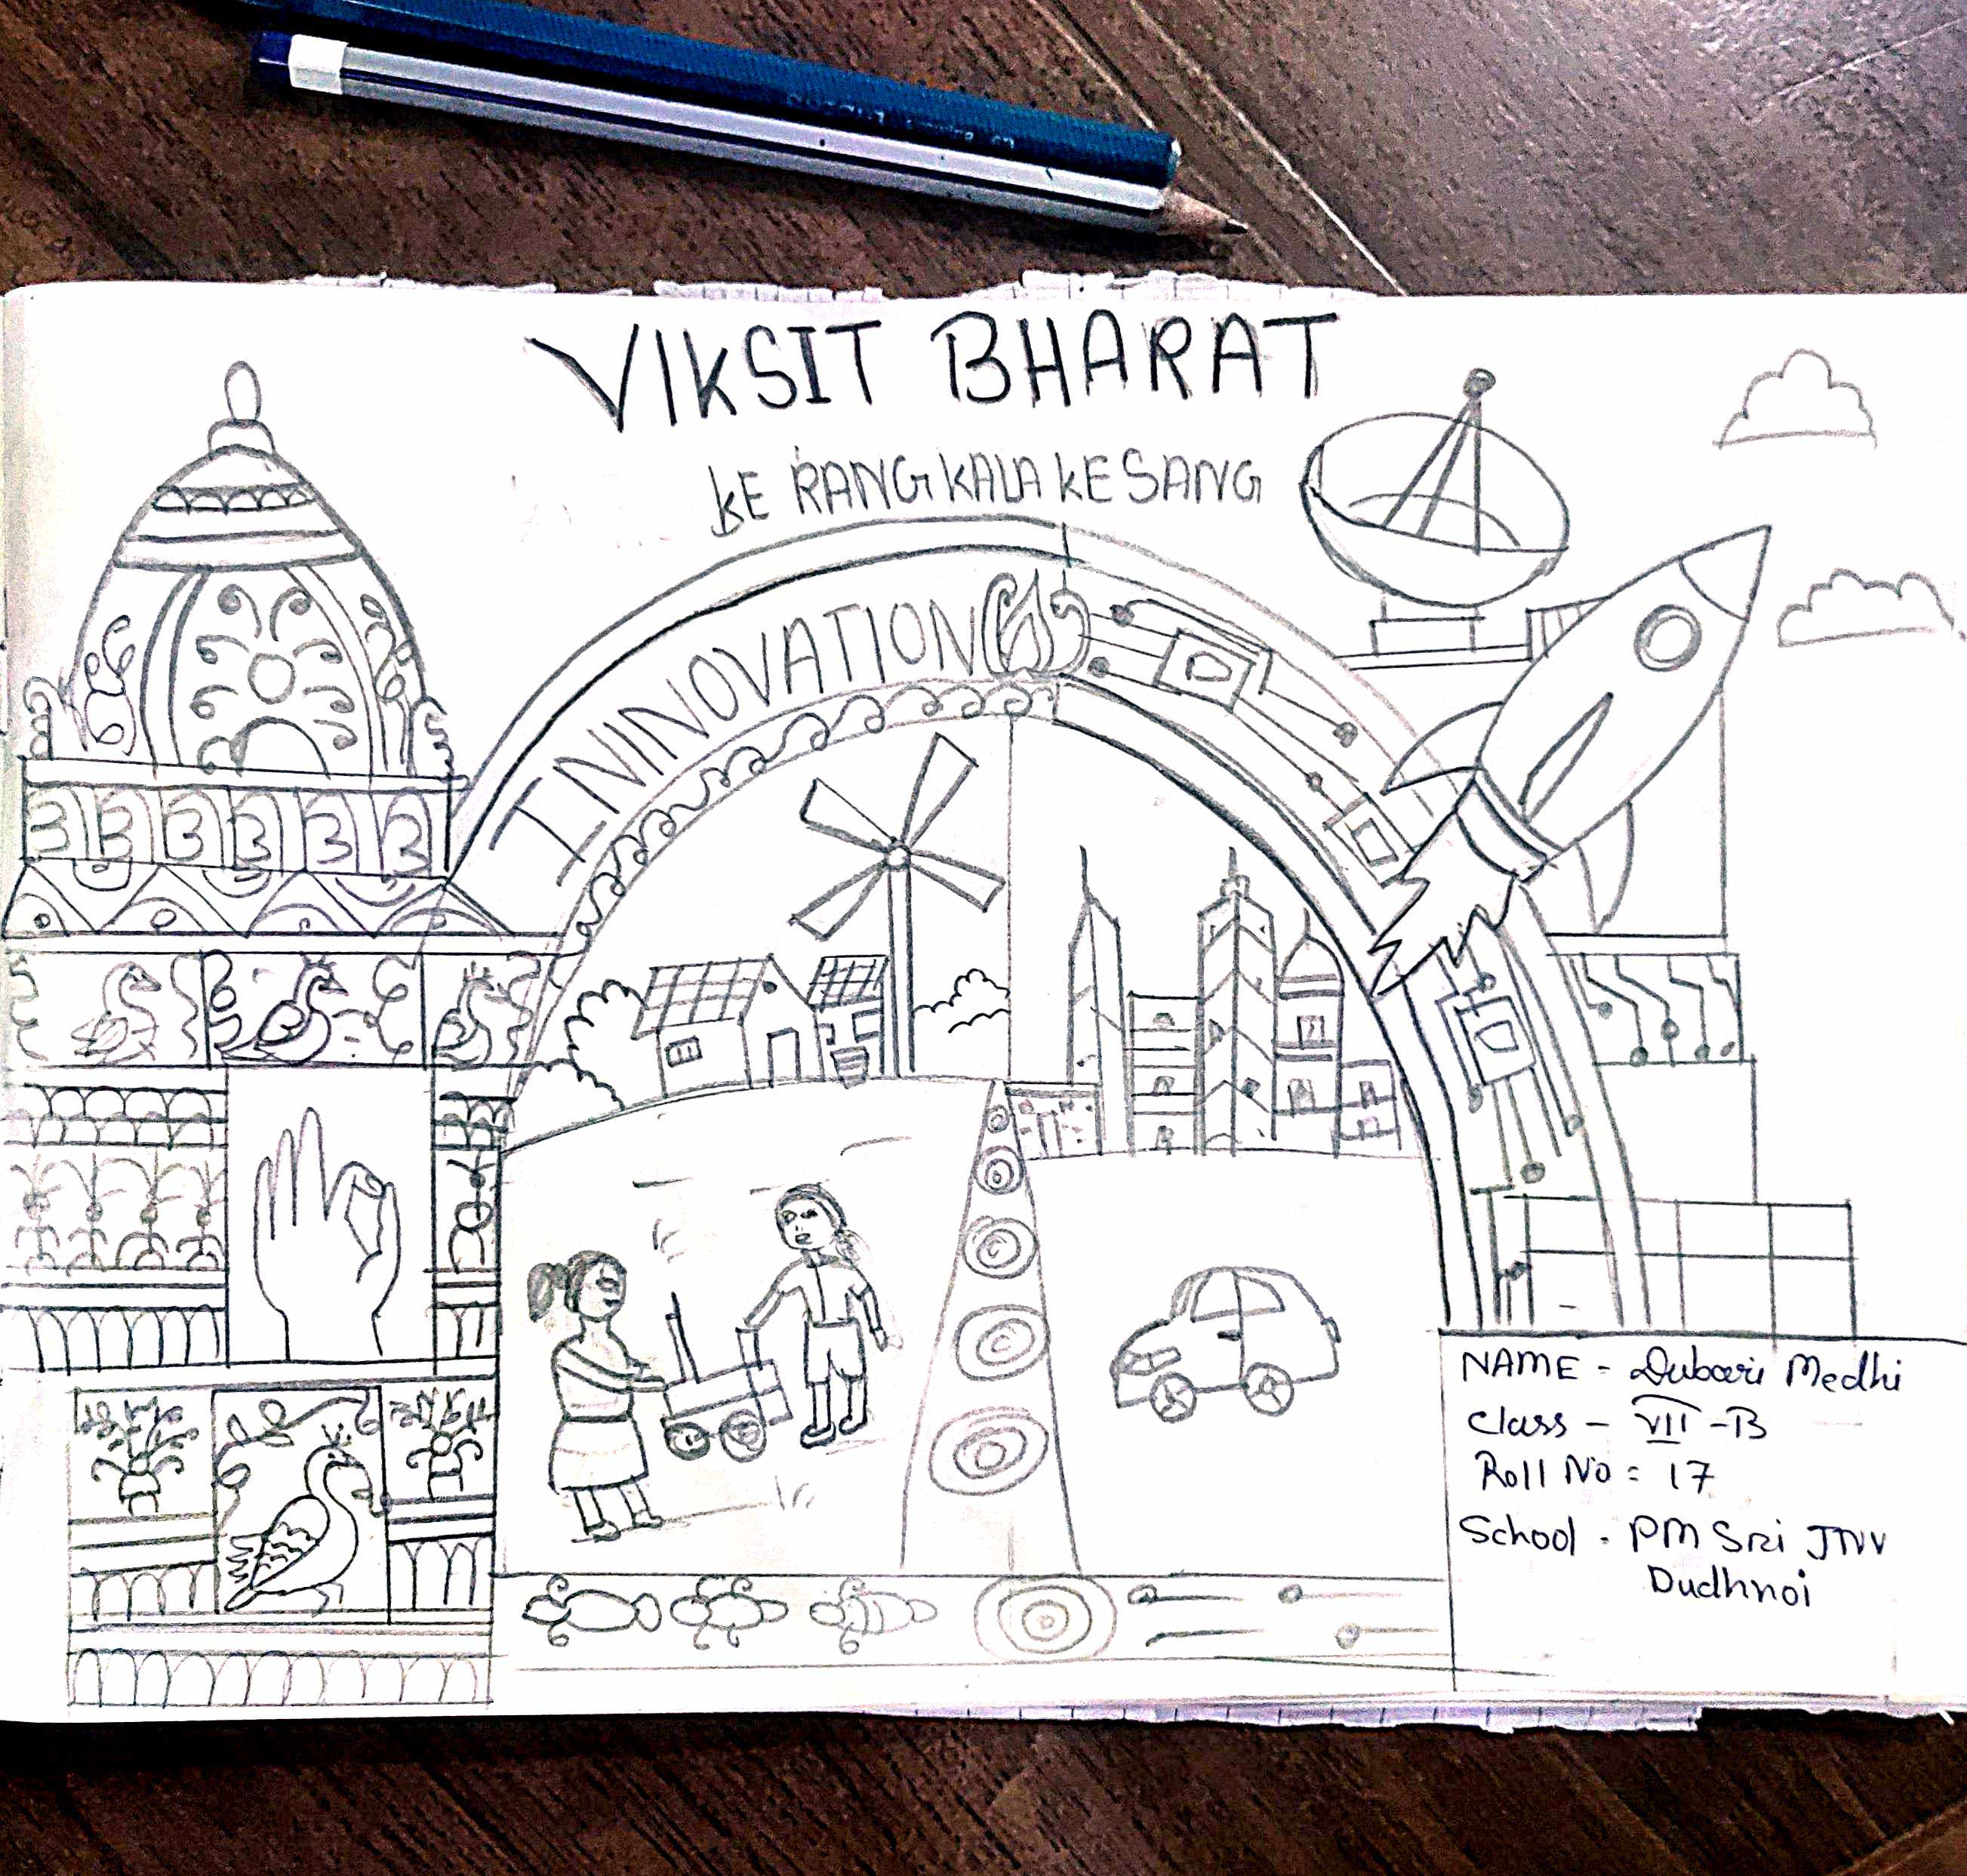 VIKSIT BHARAT
KE RANG KALA KE SANG
ININOVATION
NAME - Dubori Medhi
Class - VII - B
Roll No = 17
School - PM Sri JNV
Dudhnoi